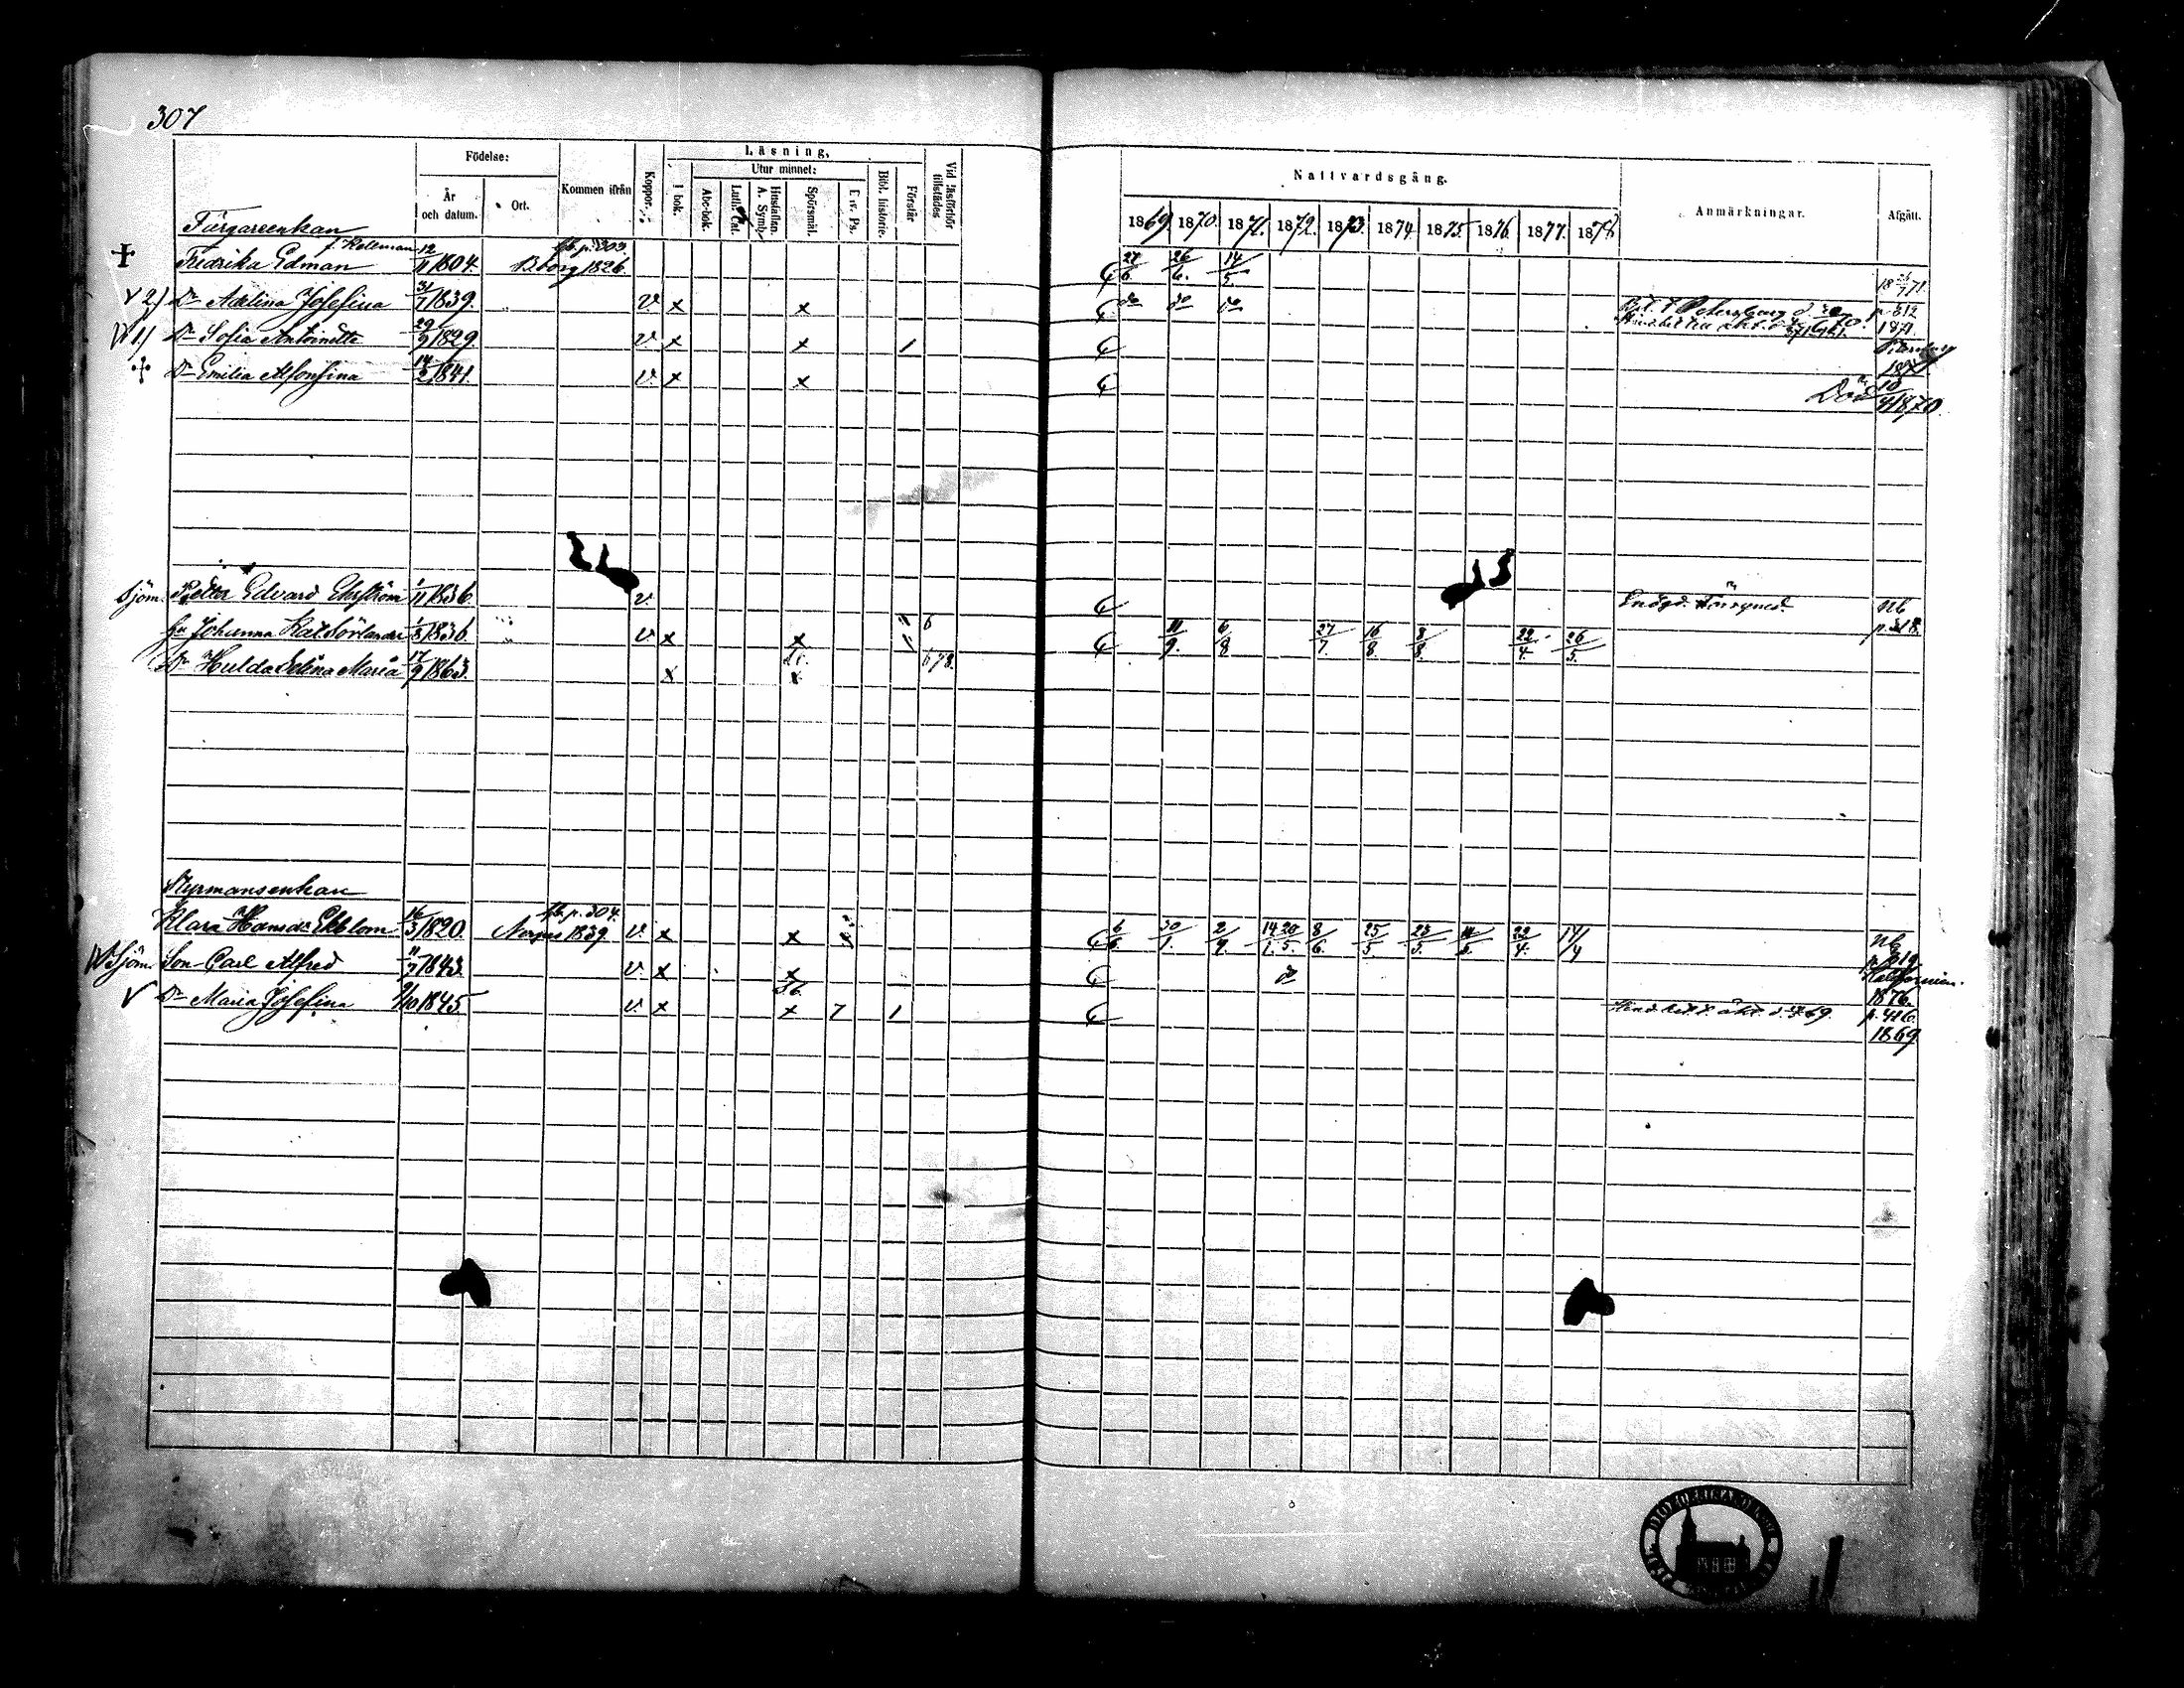 307
Födelse:
År och datum.
Ort.
Kommen ifrån
Koppor.
Läsning.
I bok.
Utur minnet:
Abc-bok.
Luth. Cat.
Hustaflan. A. Symb.
Spörsmål.
D:s Ps.
Bibl. historie.
Förstår
Vid läsförhör tillstädes
Nattvardsgång.
1869. 1870. 1871. 1872. 1873. 1874. 1875. 1876. 1877. 1878
Anmärkningar.
Afgått.
Färgareenkan
Fredrika Edman 12/11 1804. Bborg 1826. 27/6. 26/6. 14/5.
v 2) Dr Adelina Josefina 31/7 1839. v. x x do do do p. 312 1871.
1) Dr Sofia Antoinette 29/9 1829. v. x x 1
Dr Emilia Alfonsina 14/2 1841. v. x x Död 10/4 1870.
Sjöm. Petter Edvard Ehrström 1/11 1836. v.
hu Johanna Kat Sörlander 1/8 1836. v. x x 1 6 11/9. 6/8 27/7. 16/8. 8/8. 22/4. 26/5. p. 318.
Dr Hulda Selina Maria 17/9 1863. x x 678.
Styrmansenkan
Klara Hansdr Ekblom 16/3 1820. p. 304. Nagu 1839. v. x x x 6/6. 30/1. 2/9. 14/1. 20/5. 8/6. 25/5. 23/5. 22/4. 17/4
Sjöm. Son Carl Alfred 11/7 1843. v. x x do 1876.
v Dr Maria Josefina 9/10 1845. v. x x 7 1 p. 416. 1869